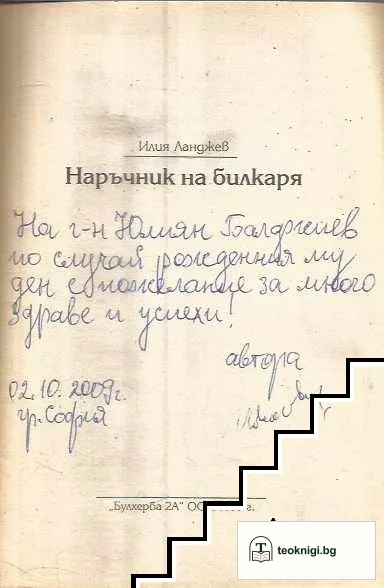 Илия Ланджев
Наръчник на билкаря
На г-н Юлиян Балджиев
по случай рождения му
ден с пожелание за много
здраве и успехи!
автора
02.10.2009г.
гр. София
„Булхерба 2А“ ОО
г.
teoknigi.bg